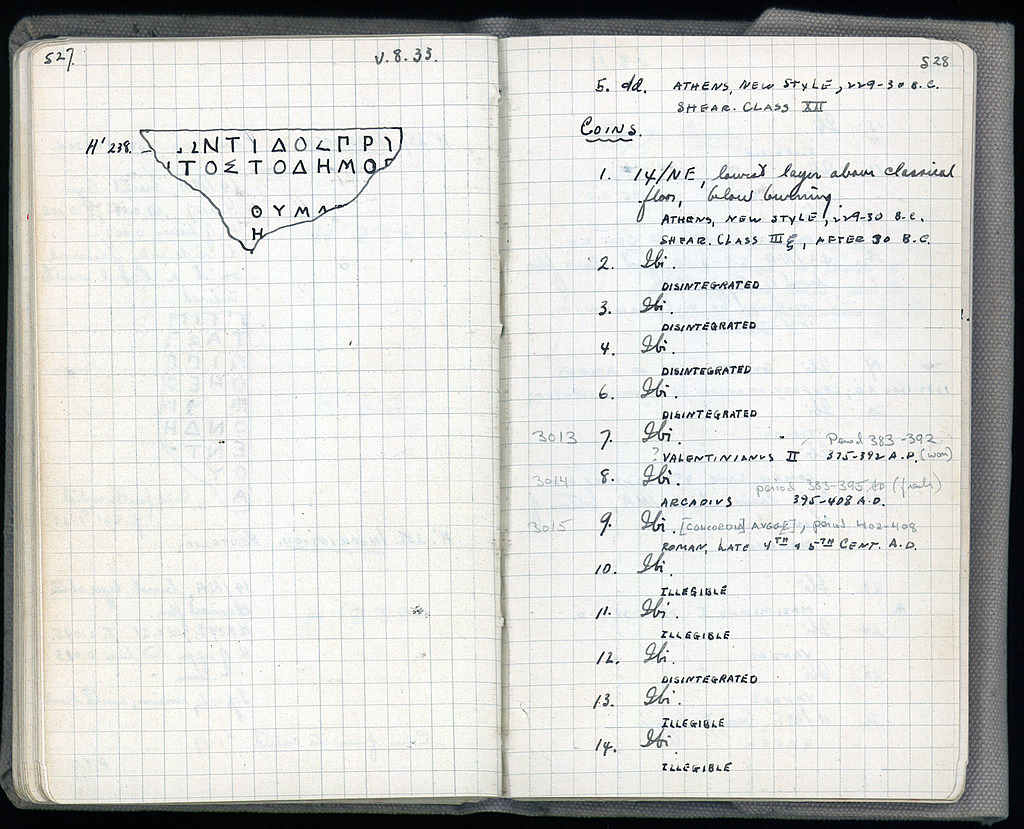 527.
V.8.33.
H' 238.
ΩΝΤΙΔΟΣΓΡΙ
ΤΟΣΤΟΔΗΜΟΓ
ΘΥΜΛ
Η
528
5. dd. ATHENS, NEW STYLE, 229-30 B.C.
SHEAR. CLASS XII
COINS.
1. 14/NE, lowest layer above classical
floor, below burning.
ATHENS, NEW STYLE, 229-30 B.C.
SHEAR. CLASS III ξ, AFTER 30 B.C.
2. Ibi.
DISINTEGRATED
3. Ibi.
DISINTEGRATED
4. Ibi.
DISINTEGRATED
6. Ibi.
DISINTEGRATED
3013 7. Ibi. Period 383-392
? VALENTINIANUS II 375-392 A.D. (worn)
3014 8. Ibi. period 383-395 AD (fresh)
ARCADIUS 395-408 A.D.
3015 9. Ibi. [CONCORDIA] AVGG[E], period 402-408
ROMAN, LATE 4TH & 5TH CENT. A.D.
10. Ibi.
ILLEGIBLE
11. Ibi.
ILLEGIBLE
12. Ibi.
DISINTEGRATED
13. Ibi.
ILLEGIBLE
14. Ibi.
ILLEGIBLE